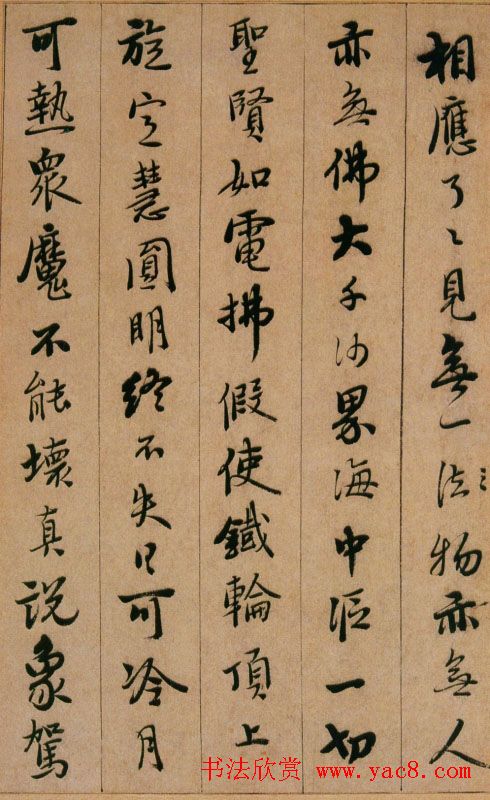 相應了〻見無一法物亦無人
亦無佛大千沙界海中漚一切
聖賢如電拂假使鐵輪頂上
旋定慧圓明終不失日可冷月
可熱衆魔不能壞真説象駕
书法欣赏 www.yac8.com